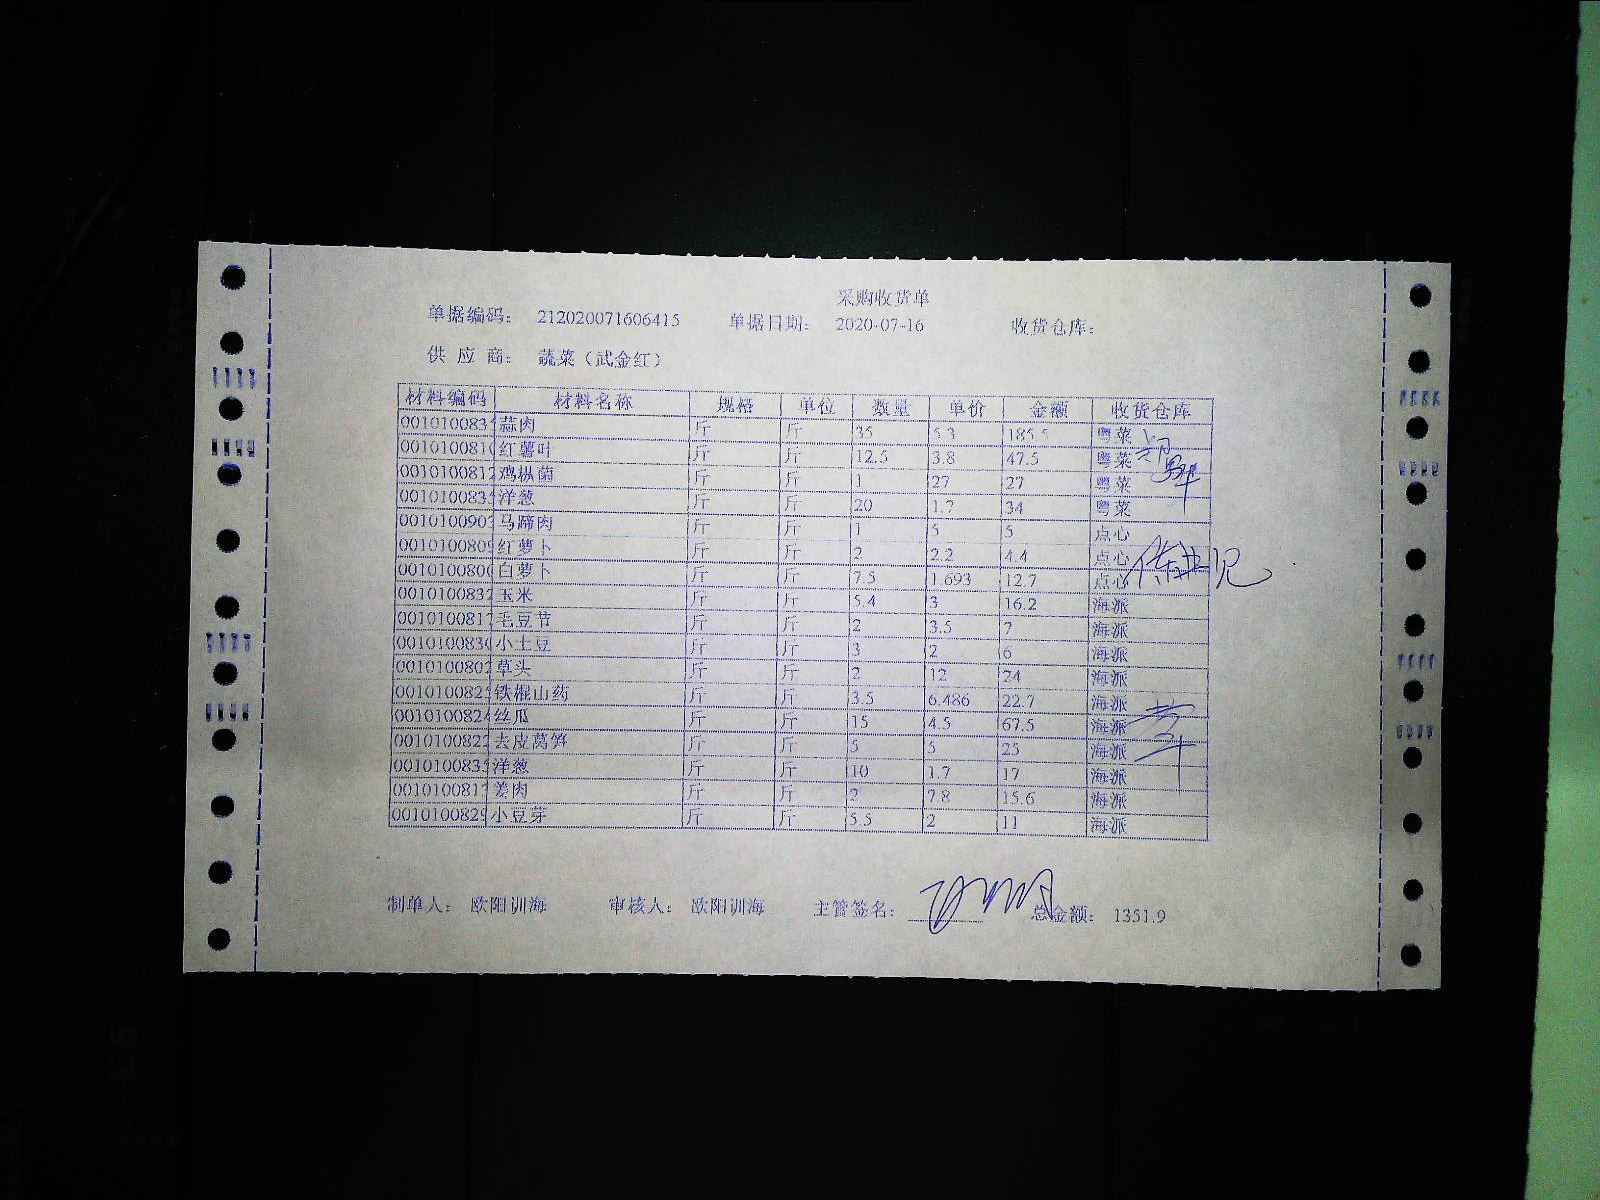 采购收货单
单据编码: 212020071606415 单据日期: 2020-07-16 收货仓库:
供 应 商: 蔬菜（武金红）
材料编码 材料名称 规格 单位 数量 单价 金额 收货仓库
001010083 蒜肉 斤 斤 35 5.3 185.5 粤菜
001010081 红薯叶 斤 斤 12.5 3.8 47.5 粤菜
001010081 鸡枞菌 斤 斤 1 27 27 粤菜
001010083 洋葱 斤 斤 20 1.7 34 粤菜
001010090 马蹄肉 斤 斤 1 5 5 点心
001010080 红萝卜 斤 斤 2 2.2 4.4 点心
001010080 白萝卜 斤 斤 7.5 1.693 12.7 点心
001010083 玉米 斤 斤 5.4 3 16.2 海派
001010081 毛豆节 斤 斤 2 3.5 7 海派
001010083 小土豆 斤 斤 3 2 6 海派
001010080 草头 斤 斤 2 12 24 海派
001010082 铁棍山药 斤 斤 3.5 6.486 22.7 海派
001010082 丝瓜 斤 斤 15 4.5 67.5 海派
001010082 去皮莴笋 斤 斤 5 5 25 海派
001010083 洋葱 斤 斤 10 1.7 17 海派
001010081 姜肉 斤 斤 2 7.8 15.6 海派
001010082 小豆芽 斤 斤 5.5 2 11 海派
制单人: 欧阳训海 审核人: 欧阳训海 主管签名: 总金额: 1351.9